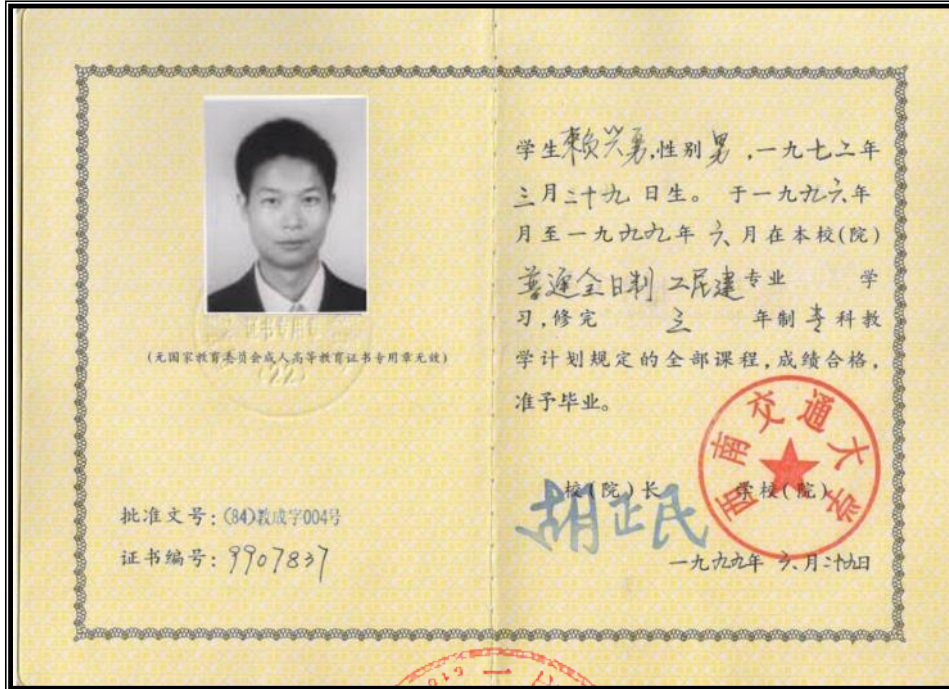 (无国家教育委员会成人高等教育证书专用章无效)
批准文号：(84)教成字004号
证书编号：9907837
学生赖兴勇，性别男，一九七二年
三月二十九日生。于一九九六年
月至一九九九年六月在本校(院)
普通全日制 工民建专业 学
习，修完 三 年制专科教
学计划规定的全部课程，成绩合格，
准予毕业。
西南交通大学
校(院)长 学校(院)
胡正民
一九九九年六月二十九日